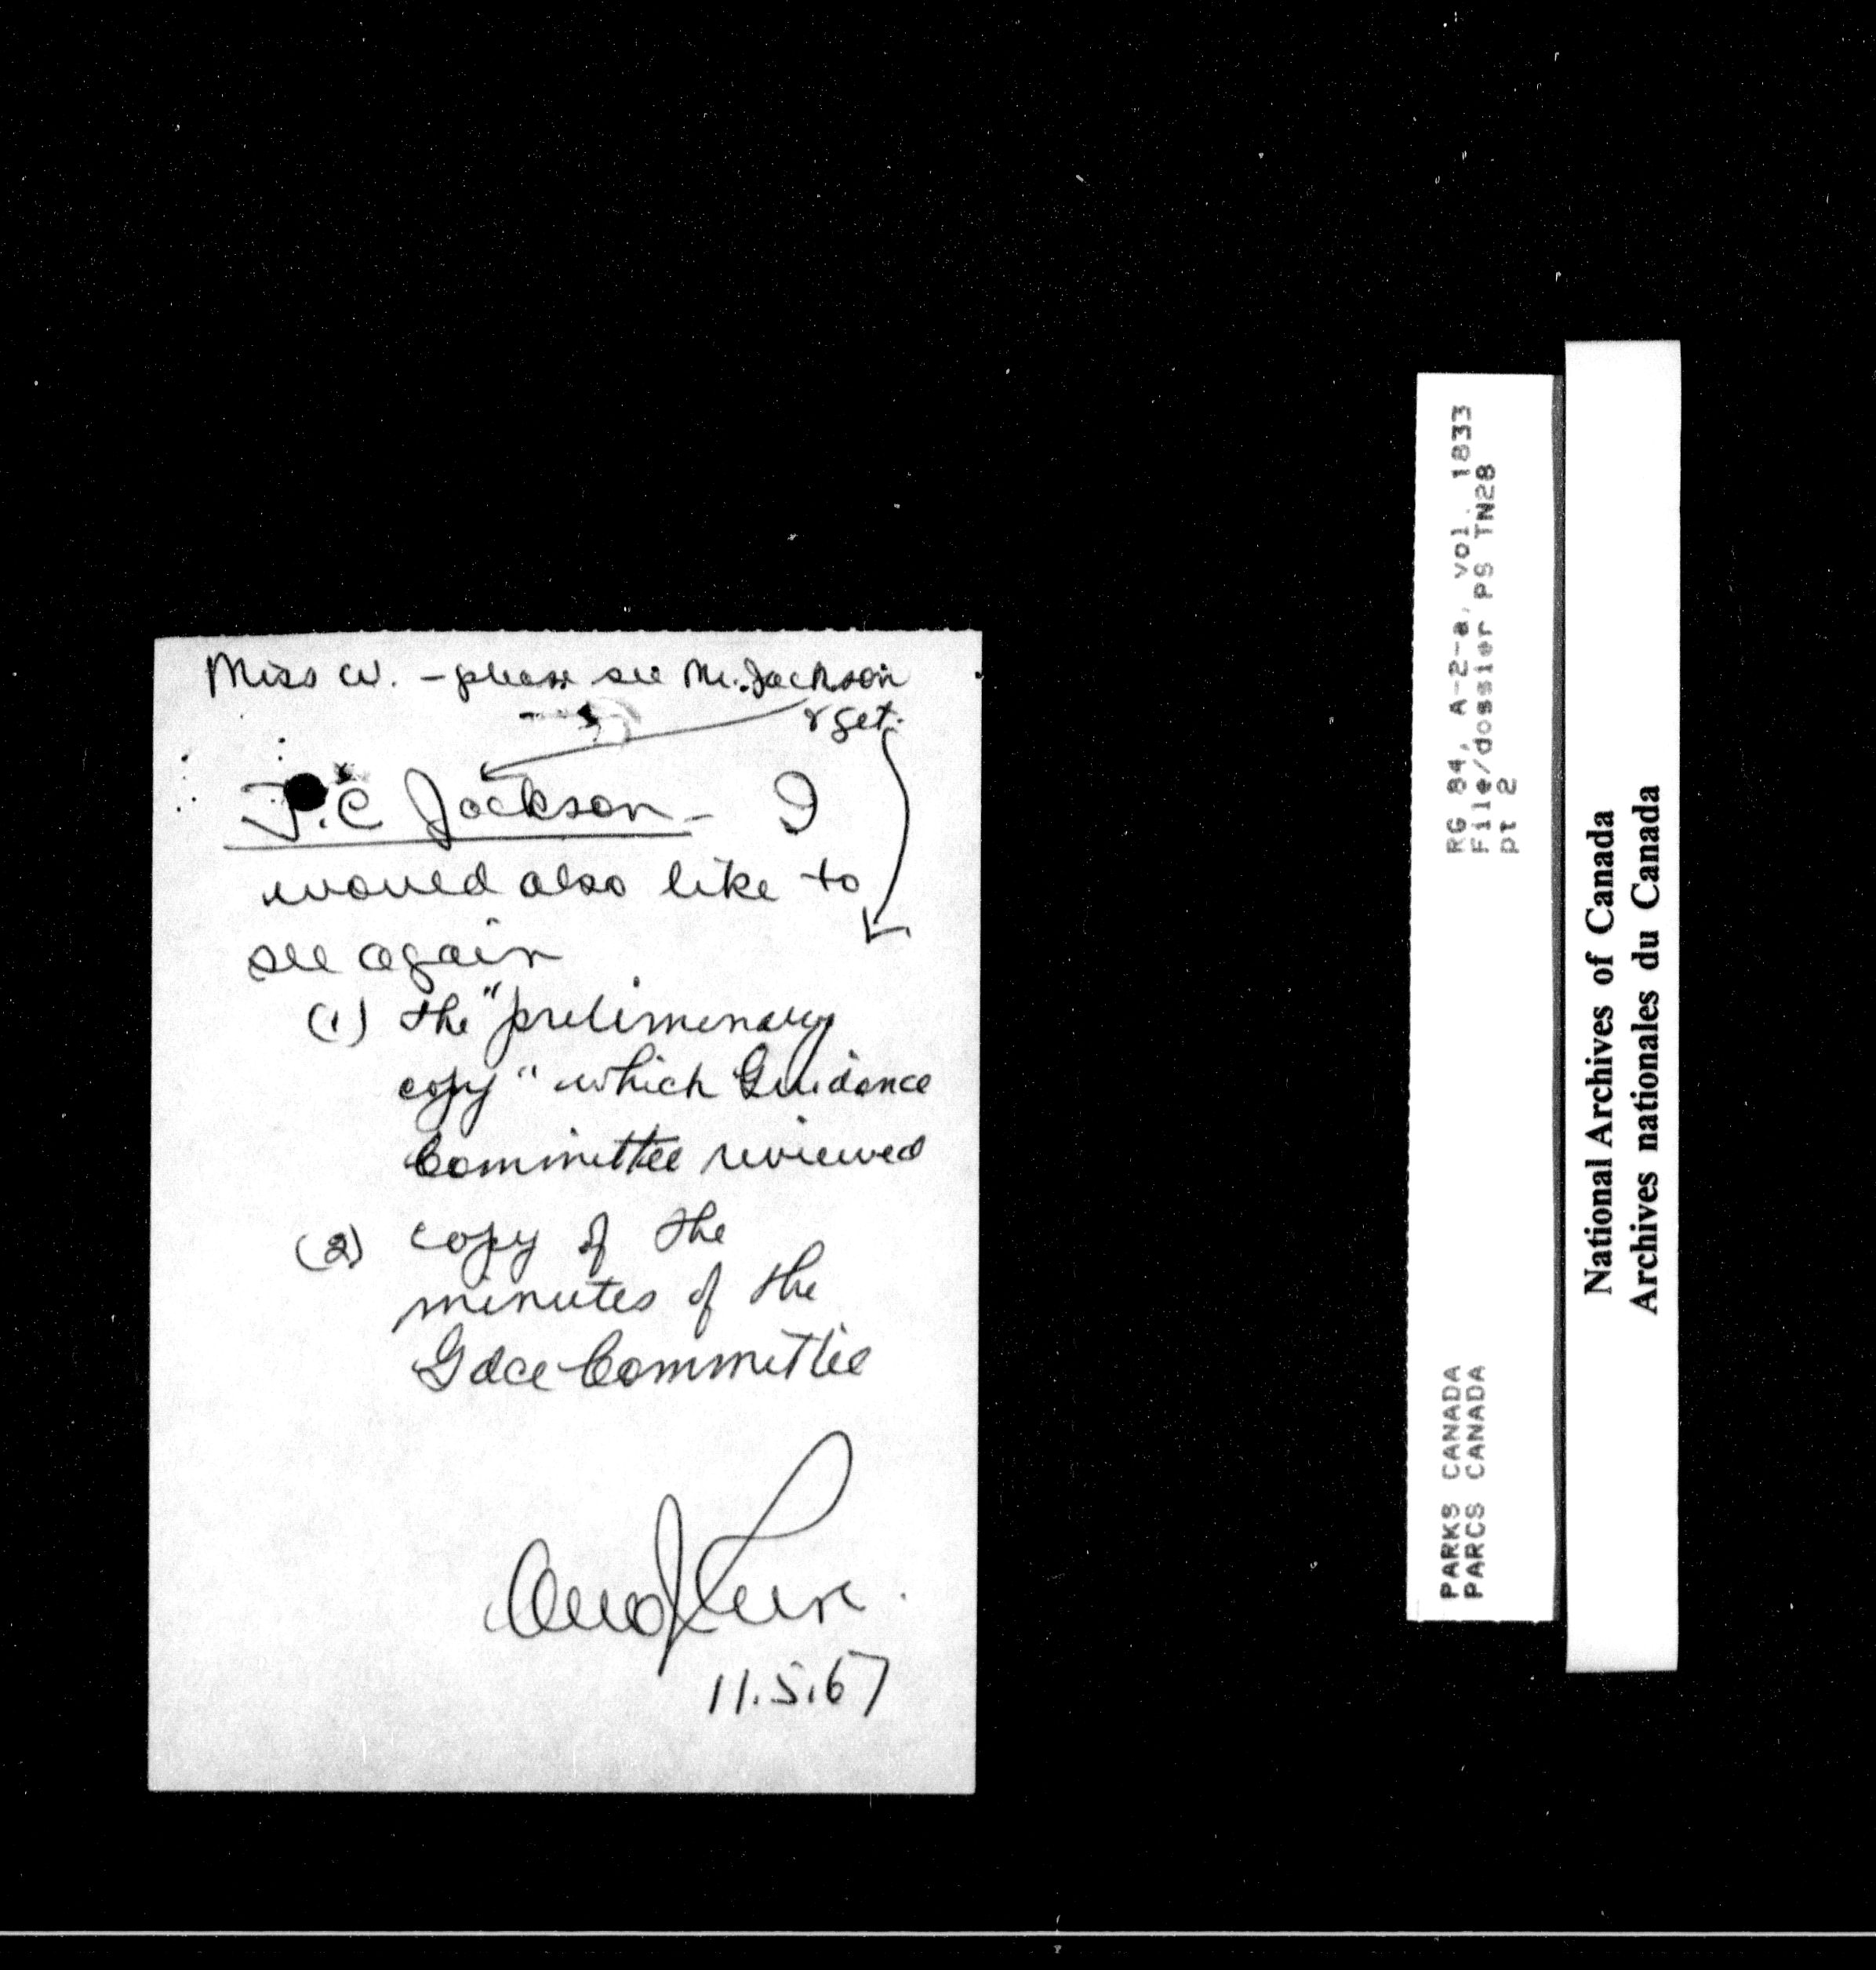 Miss W. - please see Mr. Jackson
& get:
J.C Jackson - I
would also like to
see again
(1) the "preliminary
copy" which Guidance
Committee reviewed
(2) copy of the
minutes of the
Gdce Committee
11.5.67
RG 84, A-2-a, vol. 1833
File/dossier PS TN28
pt 2
PARKS CANADA
PARCS CANADA
National Archives of Canada
Archives nationales du Canada